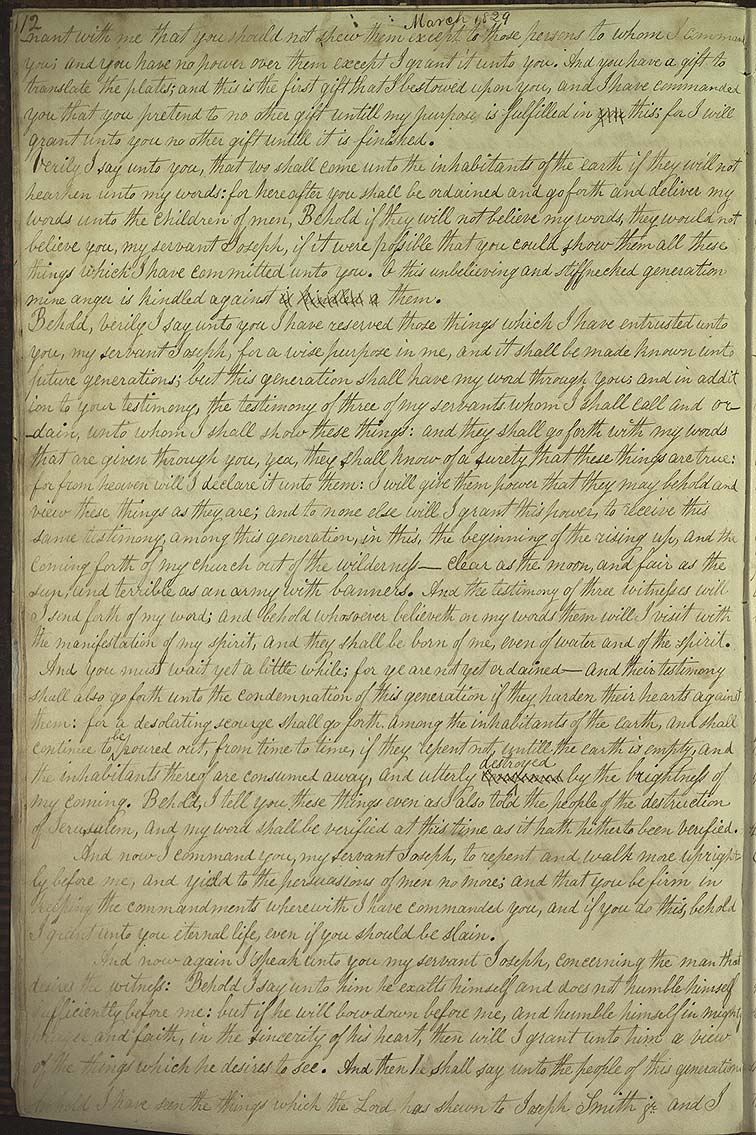 12
March 1829
nant with me that you should not shew them except to those persons to whom I command
you; and you have no power over them except I grant it unto you. And you have a gift to
translate the plates; and this is the first gift that I bestowed upon you, and I have commanded
you that you pretend to no other gift untill my purpose is fulfilled in this; for I will
grant unto you no other gift untill it is finished.
Verily I say unto you, that wo shall come unto the inhabitants of the earth if they will not
hearken unto my words: for hereafter you shall be ordained and go forth and deliver my
words unto the children of men, Behold if they will not believe my words, they would not
believe you, my servant Joseph, if it were possible that you could show them all these
things which I have committed unto you. O this unbelieving and stiffnecked generation
mine anger is kindled against is kindled a them.
Behold, verily I say unto you I have reserved those things which I have entrusted unto
you, my servant Joseph, for a wise purpose in me, and it shall be made known unto
future generations; but this generation shall have my word through you; and in addit
ion to your testimony, the testimony of three of my servants whom I shall call and or-
-dain, unto whom I shall show these things: and they shall go forth with my words
that are given through you, yea, they shall know of a surety that these things are true:
for from heaven will I declare it unto them: I will give them power that they may behold and
view these things as they are; and to none else will I grant this power, to receive this
same testimony, among this generation, in this, the beginning of the rising up, and the
coming forth of my church out of the wilderness— clear as the moon, and fair as the
sun, and terrible as an army with banners. And the testimony of three witnesses will
I send forth of my word; and behold whosoever believeth on my words them will I visit with
the manifestation of my spirit, and they shall be born of me, even of water and of the spirit.
And you must wait yet a little while; for ye are not yet ordained— And their testimony
shall also go forth unto the condemnation of this generation if they harden their hearts against
them: for a desolating scourge shall go forth among the inhabitants of the earth, and shall
continue to be poured out, from time to time, if they repent not, untill the earth is empty, and
the inhabitants thereof are consumed away, and utterly destroyed by the brightness of
my coming. Behold, I tell you these things even as I also told the people of the destruction
of Jerusalem, and my word shall be verified at this time as it hath hitherto been verified.
And now I command you, my servant Joseph, to repent and walk more upright-
ly before me, and yield to the persuasions of men no more; and that you be firm in
keeping the commandments wherewith I have commanded you, and if you do this, behold
I grant unto you eternal life, even if you should be slain.
And now again I speak unto you my servant Joseph, concerning the man that
desires the witness: Behold I say unto him he exalts himself and does not humble himself
sufficiently before me: but if he will bow down before me, and humble himself in mighty
prayer and faith, in the sincerity of his heart, then will I grant unto him a view
of the things which he desires to see. And then he shall say unto the people of this generation
behold I have seen the things which the Lord has shewn to Joseph Smith jr. and I